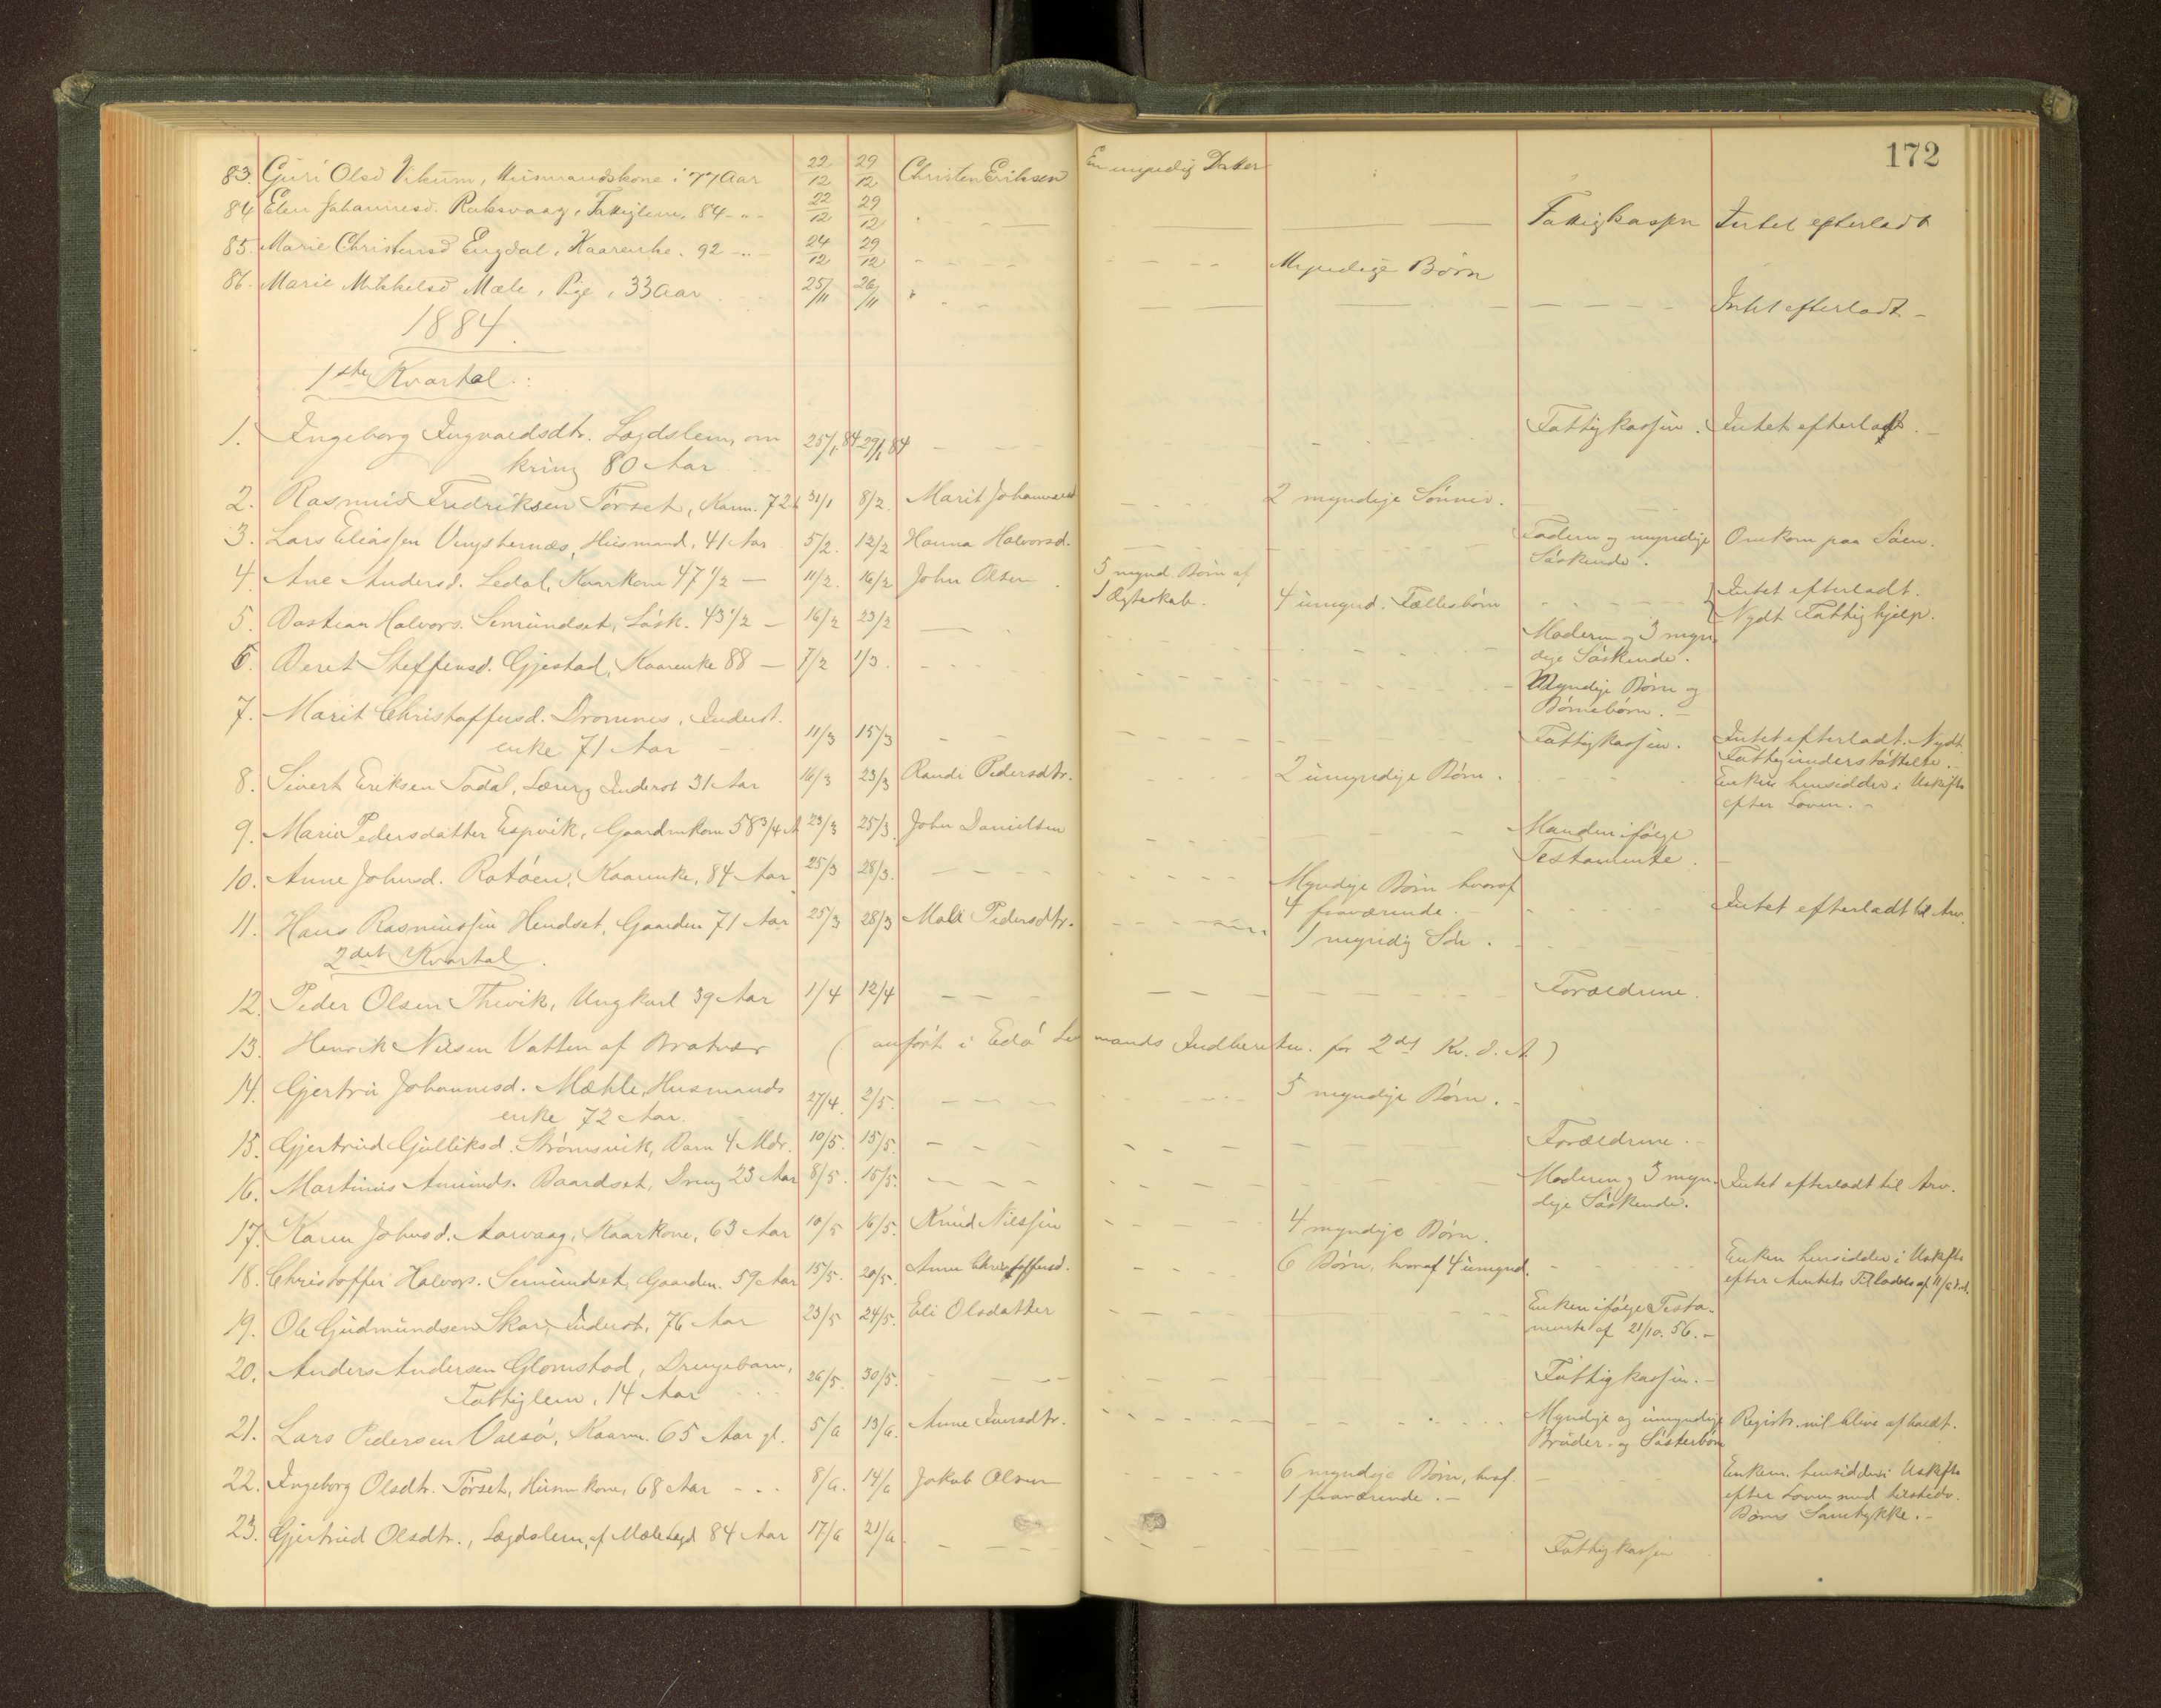 172
83. Guri Olsd Vikum, Husmandskone i 77 Aar 22/12 29/12 Christen Eriksen En myndig Datter
84 Elen Johannesd. Raksvaag, Fattiglem, 84 - " - 22/12 29/12 Fattigkassen Intet efterladt
85. Marie Christensd Engdal, Kaarenke. 92 - " - 24/12 29/12 Myndige Børn
86. Marie Mikkelsd Mæle, Pige, 33 Aar 25/11 26/11 Intet efterladt -
1884.
1ste Kvartal:
1. Ingeborg Ingvaldsdtr. Lægdslem, om 25/1 84 29/1 84 Fattigkassen. Intet efterladt. -
kring 80 Aar
2. Rasmus Fredriksen Tørset, Kaarm. 72 31/1 8/2. Marit Johannesd 2 myndige Sønner.
3. Lars Eliassen Vingsternæs, Husmand, 41 Aar 5/2. 12/2 Hanna Halvorsd. Faderen og myndige Omkom paa Søen.
Søskende.
4. Ane Andersd. Ledal, Kaarkone 47 1/2 — 11/2. 16/2 John Olsen. 5 mynd. Børn af 4 umynd. Fællesbørn Intet efterladt.
1 Ægteskab. Nydt Fattighjelp.
5. Bastian Halvors. Semundset, Løsk. 43 1/2 — 16/2 23/2 Moderen og 3 myn
dige Søskende.
6. Beret Steffensd. Gjestad, Kaarenke 88 — 7/2 1/3. Myndige Børn og
Børnebørn. -
7. Marit Christoffersd. Dromnes, Inderst.
enke 71 Aar 11/3 15/3 Fattigkassen. Intet efterladt. Nydt
Fattigunderstøttelse. -
8. Sivert Eriksen Todal, Lærer og Inderst 31 Aar 16/3 23/3 Randi Pedersdtr. 2 umyndige Børn. Enken hensidder i Uskifte
efter Loven. -
9. Marie Pedersdatter Espvik, Gaardmkone 58 3/4 A 23/3 25/3. John Danielsen Manden ifølge
Testamente.
10. Anne Johnsd. Rotøen, Kaarenke, 84 Aar 25/3 28/3. Myndige Børn hvoraf
4 fraværende. Intet efterladt til Arv.
11. Hans Rasmussen Hendset, Gaardm 71 Aar 25/3 28/3 Mali Pedersdtr. 1 myndig Søn.
2det Kvartal.
12. Peder Olsen Thevik, Ungkarl 39 Aar 1/4 12/4 Forældrene.
13. Henrik Nilsen Vatten af Bratvær (anført i Edø Lensmands Indberetn. for 2det Kv. d. A.)
14. Gjertru Johannesd. Mæhle, Husmands
enke 72 Aar. 27/4. 2/5. 5 myndige Børn. -
15. Gjertrud Gulliksd. Strømsvik, Barn 4 Mdr. 10/5. 15/5. Forældrene. -
16. Martinus Amunds. Baardset, Dreng 23 Aar 8/5. 15/5. Moderen og 3 myn- Intet efterladt til Arv.
dige Søskende.
17. Karen Johnsd. Aarvaag, Kaarkone, 63 Aar 10/5 16/5. Knud Nilssen 4 myndige Børn.
18. Christoffer Halvors. Semundset, Gaardm. 59 Aar 15/5. 20/5. Anne Christoffersd. 6 Børn, hvoraf 4 umynd. Enken hensidder i Uskifte
efter Amtets Tilladelse af 11/6 d.A.
19. Ole Gudmundsen Skar, Inderst, 76 Aar 23/5 24/5. Eli Olsdatter Enken ifølge Testa-
mente af 21/10. 56. -
20. Anders Andersen Glomstad, Drengebarn,
Fattiglem, 14 Aar 26/5. 30/5. Fattigkassen. -
21. Lars Pedersen Valsø, Kaarm. 65 Aar gl. 5/6 13/6. Anne Iversdtr. Myndige og umyndige Registr. vil blive afholdt.
Brøder- og Søsterbørn
22. Ingeborg Olsdtr. Tørset, Husmkone, 68 Aar 8/6. 14/6 Jakob Olsen 6 myndige Børn, hvaf. Enkem. hensidder i Uskifte
1 fraværende. - efter Loven med tilstedev.
Børns Samtykke. -
23. Gjertrud Olsdtr., Lægdslem, af Mæle Lægd 84 Aar 17/6 21/6. Fattigkassen